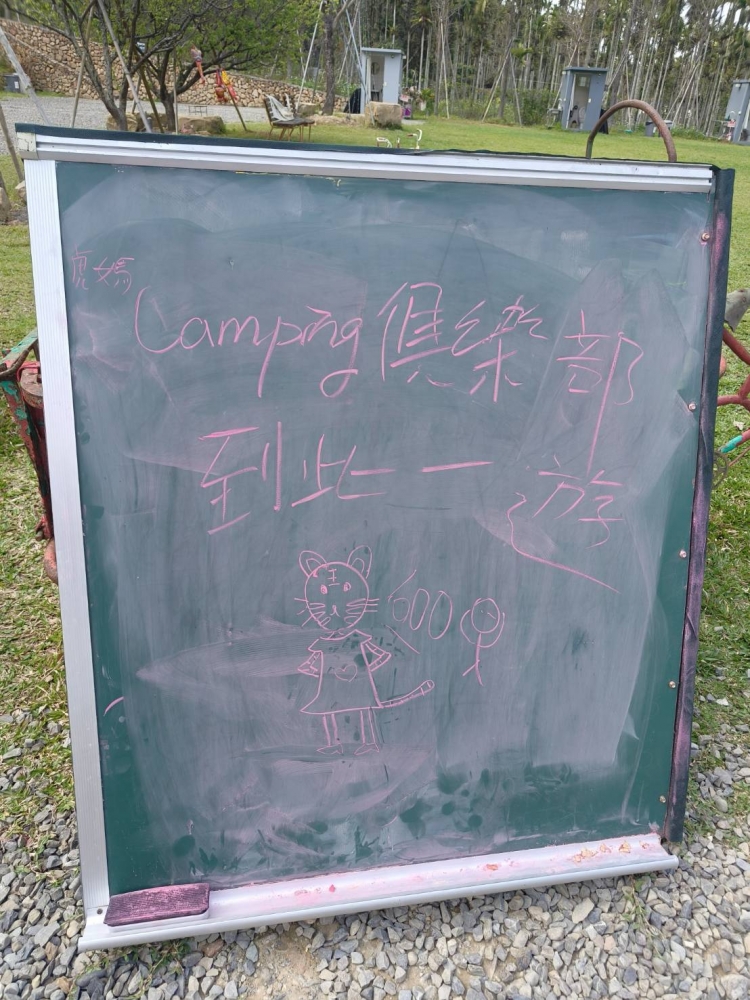 虎媽
Camping 俱樂部
到此一遊
王
600